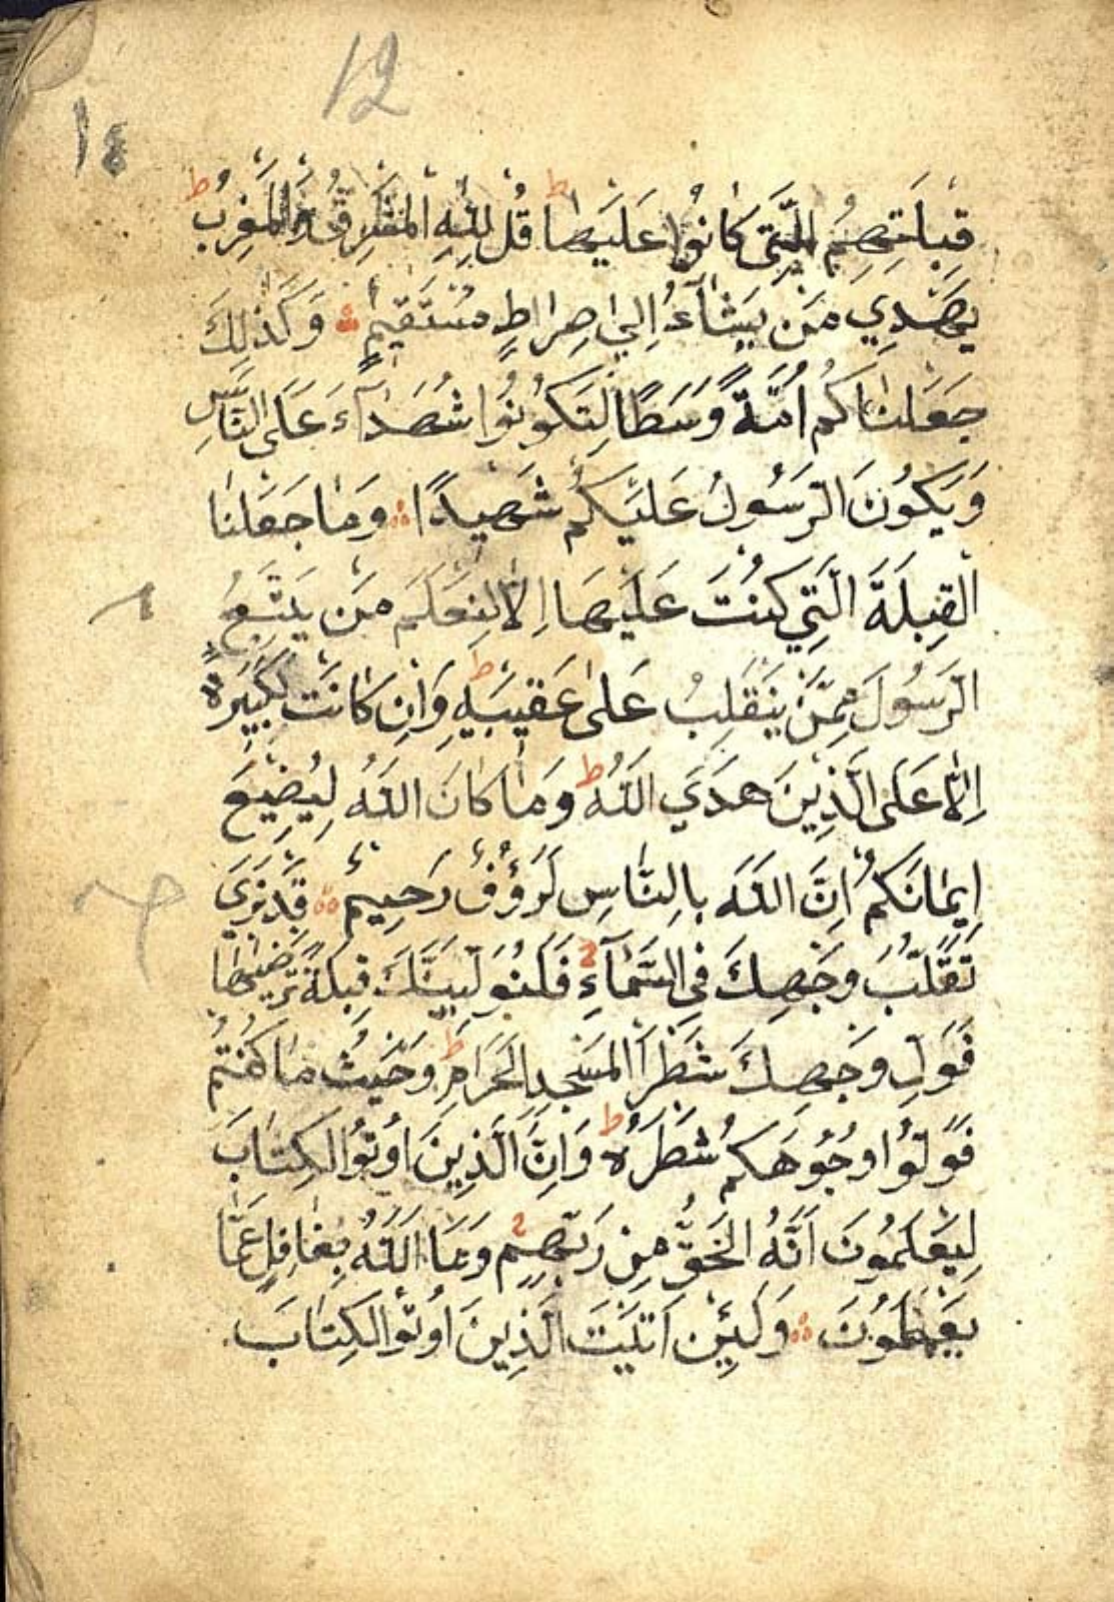 12
١٤
قِبْلَتِهِمُ الَّتِي كَانُوا عَلَيْهَا ط قُلْ لِلَّهِ الْمَشْرِقُ وَالْمَغْرِبُ ط
يَهْدِي مَنْ يَشَاءُ اِلَي صِرَاطٍ مُسْتَقِيمٍ وَكَذٰلِكَ
جَعَلْنَاكُمْ اُمَّةً وَسَطًا لِتَكُونُوا شُهَدَآءَ عَلَى النَّاسِ
وَيَكُونَ الرَّسُولُ عَلَيْكُمْ شَهِيدًا وَمَا جَعَلْنَا
الْقِبْلَةَ الَّتِي كُنْتَ عَلَيْهَا اِلَّا لِنَعْلَمَ مَنْ يَتَّبِعُ
الرَّسُولَ مِمَّنْ يَنْقَلِبُ عَلٰى عَقِبَيْهِ ط وَاِنْ كَانَتْ لَكَبِيرَةً
اِلَّا عَلَى الَّذِينَ هَدَي اللّٰهُ ط وَمَا كَانَ اللّٰهُ لِيُضِيعَ
اِيمَانَكُمْ اِنَّ اللّٰهَ بِالنَّاسِ لَرَؤُفٌ رَحِيمٌ قَدْ نَرَي
تَقَلُّبَ وَجْهِكَ فِي السَّمَآءِ فَلَنُوَلِّيَنَّكَ قِبْلَةً تَرْضٰيهَا
فَوَلِّ وَجْهَكَ شَطْرَ الْمَسْجِدِ الْحَرَامِ ط وَحَيْثُ مَا كُنْتُمْ
فَوَلُّوا وُجُوهَكُمْ شَطْرَهُ ط وَاِنَّ الَّذِينَ اُوتُوا الْكِتَابَ
لَيَعْلَمُونَ اَنَّهُ الْحَقُّ مِنْ رَبِّهِمْ وَمَا اللّٰهُ بِغَافِلٍ عَمَّا
يَعْمَلُونَ وَلَئِنْ اَتَيْتَ الَّذِينَ اُوتُوا الْكِتَابَ